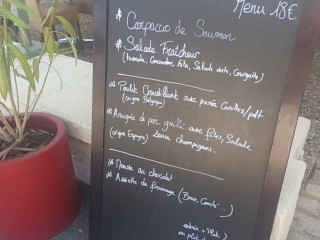 Menu 18€
* Carpaccio de Saumon
* Salade Fraîcheur
(tomate, Concombre, féta, Salade verte, Courgette)
* Poulet Croustillant avec purée Carottes/patt.
(origine Belgique)
* Araignée de porc grillé avec frites, Salade
(origine Espagne) Sauce champignons.
* Mousse au chocolat
* Assiette de fromage (Brie, Comté...)
entrée + Plat
ou plat